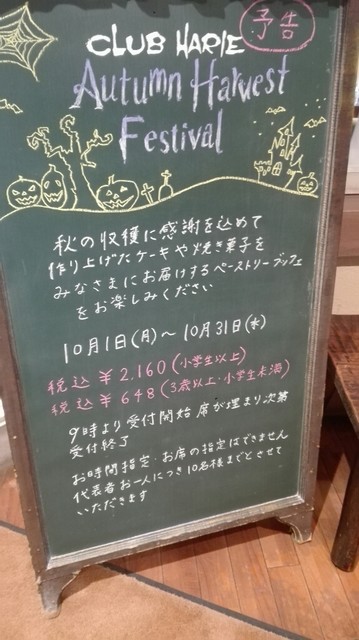 予告
CLUB HARIE
Autumn Harvest
Festival
秋の収穫に感謝を込めて
作り上げたケーキや焼き菓子を
みなさまにお届けするペーストリーブッフェ
をお楽しみください
10月1日(月)～10月31日(水)
税込 ¥2.160(小学生以上)
税込 ¥648(3歳以上・小学生未満)
9時より受付開始 席が埋まり次第
受付終了
お時間指定・お席の指定はできません
代表者お一人につき10名様までとさせて
いただきます